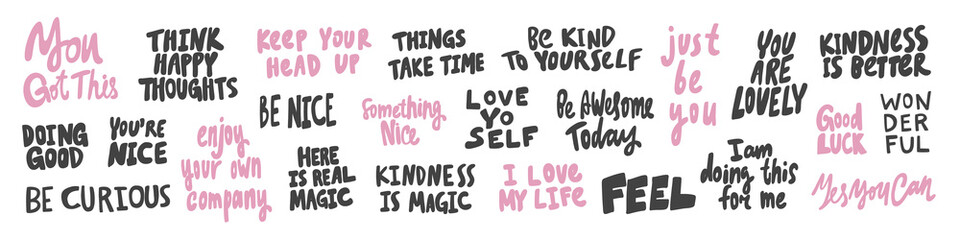 You
Got This
THINK
HAPPY
THOUGHTS
KEEP YOUR
HEAD UP
THINGS
TAKE TIME
BE KIND
TO YOURSELF
just
be
you
YOU
ARE
LOVELY
KINDNESS
IS BETTER
DOING
GOOD
YOU'RE
NICE
enjoy
your own
company
BE NICE
Something
Nice
LOVE
YO
SELF
Be Awesome
Today
Good
LUCK
WON
DER
FUL
BE CURIOUS
HERE
IS REAL
MAGIC
KINDNESS
IS MAGIC
I LOVE
MY LIFE
FEEL
I am
doing this
for me
Yes You Can